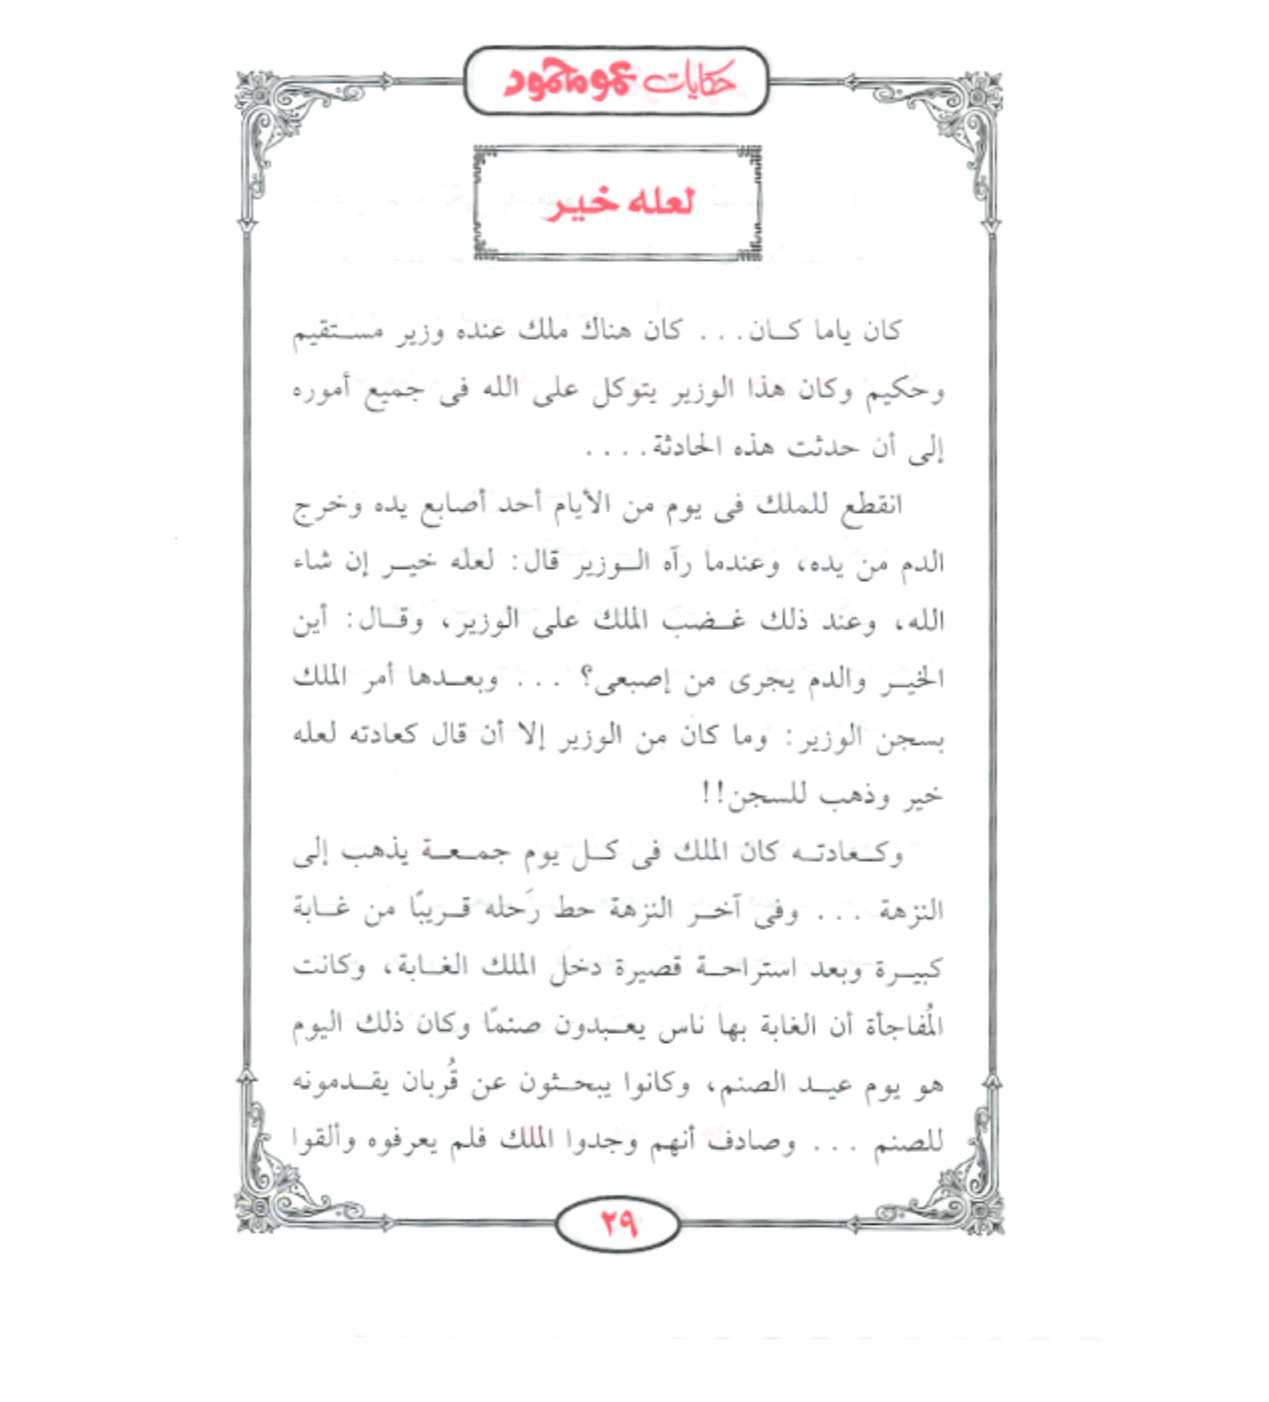 حكايات عمو محمود
لعله خير
كان ياما كان... كان هناك ملك عنده وزير مستقيم
وحكيم وكان هذا الوزير يتوكل على الله فى جميع أموره
إلى أن حدثت هذه الحادثة....
انقطع للملك فى يوم من الأيام أحد أصابع يده وخرج
الدم من يده، وعندما رآه الوزير قال: لعله خير إن شاء
الله، وعند ذلك غضب الملك على الوزير، وقال: أين
الخير والدم يجرى من إصبعى؟ ... وبعدها أمر الملك
بسجن الوزير: وما كان من الوزير إلا أن قال كعادته لعله
خير وذهب للسجن!!
وكعادته كان الملك فى كل يوم جمعة يذهب إلى
النزهة ... وفى آخر النزهة حط رَحله قريبًا من غابة
كبيرة وبعد استراحة قصيرة دخل الملك الغابة، وكانت
المُفاجأة أن الغابة بها ناس يعبدون صنمًا وكان ذلك اليوم
هو يوم عيد الصنم، وكانوا يبحثون عن قُربان يقدمونه
للصنم ... وصادف أنهم وجدوا الملك فلم يعرفوه وألقوا
٢٩